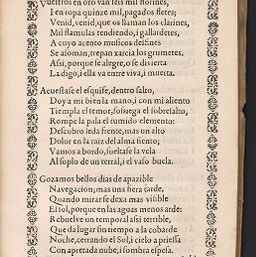 Vuestros en oro van seis mil florines,
I en ropa quinze mil, pagados fletes;
Venid, venid, que os llaman los clarines,
Mil flamulas tendiendo, i gallardetes,
A cuyo acento musicos delfines
Se assoman, trepan xarcia los grumetes,
Assi, porque se alegre, o se divierta
La digo, i ella va entre viva, i muerta.
Acuestase el esquife, dentro salto,
Doy a mi bien la mano, i con mi aliento
Tiempla el temor, sossiega el sobresalto,
Rompe la pala el tumido elemento:
Descubro leda frente, mas un alto
Dolor en la raiz del alma siento;
Vamos a bordo, sueltase la vela
Al soplo de un terral, i el vaso buela.
Gozamos bellos dias de apazible
Navegacion; mas una fiera tarde,
Quando mirar se dexa mas visible
El Sol, porque en las aguas menos arde:
Rebuelve un temporal assi terrible,
Que da lugar sin tiempo a la cobarde
Noche, cerrando el Sol, i cielo a priessa
Con apretada nube, i sombra espessa.